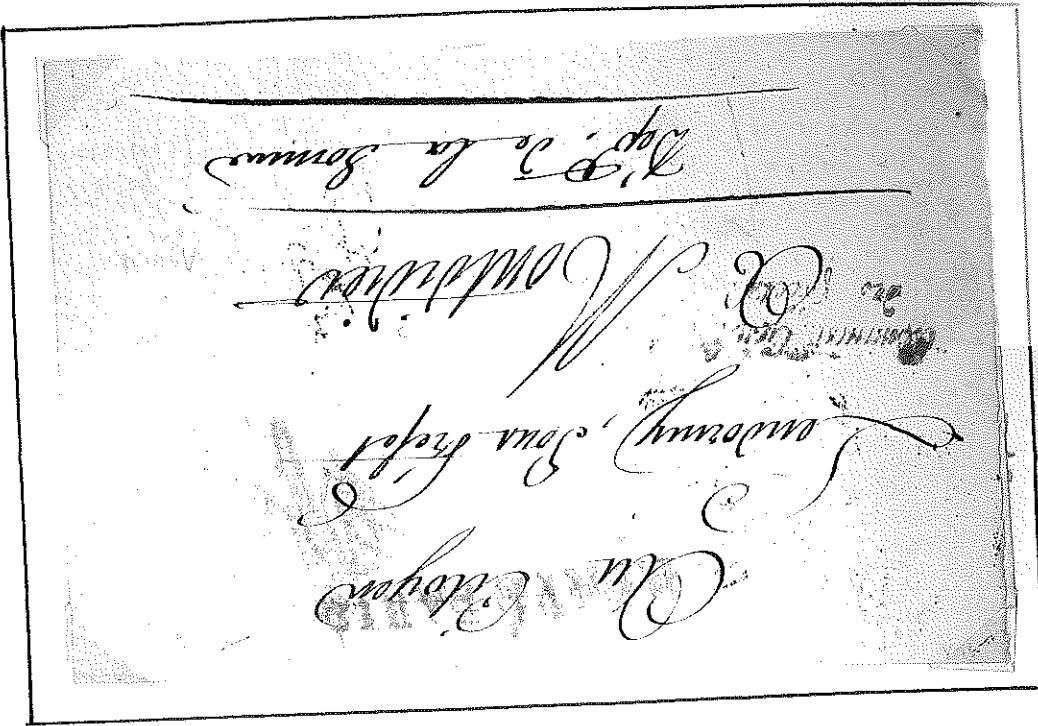 Au Citoyen
Lendormy, Sous Préfet
A Montdidier
Dépt. de la Somme